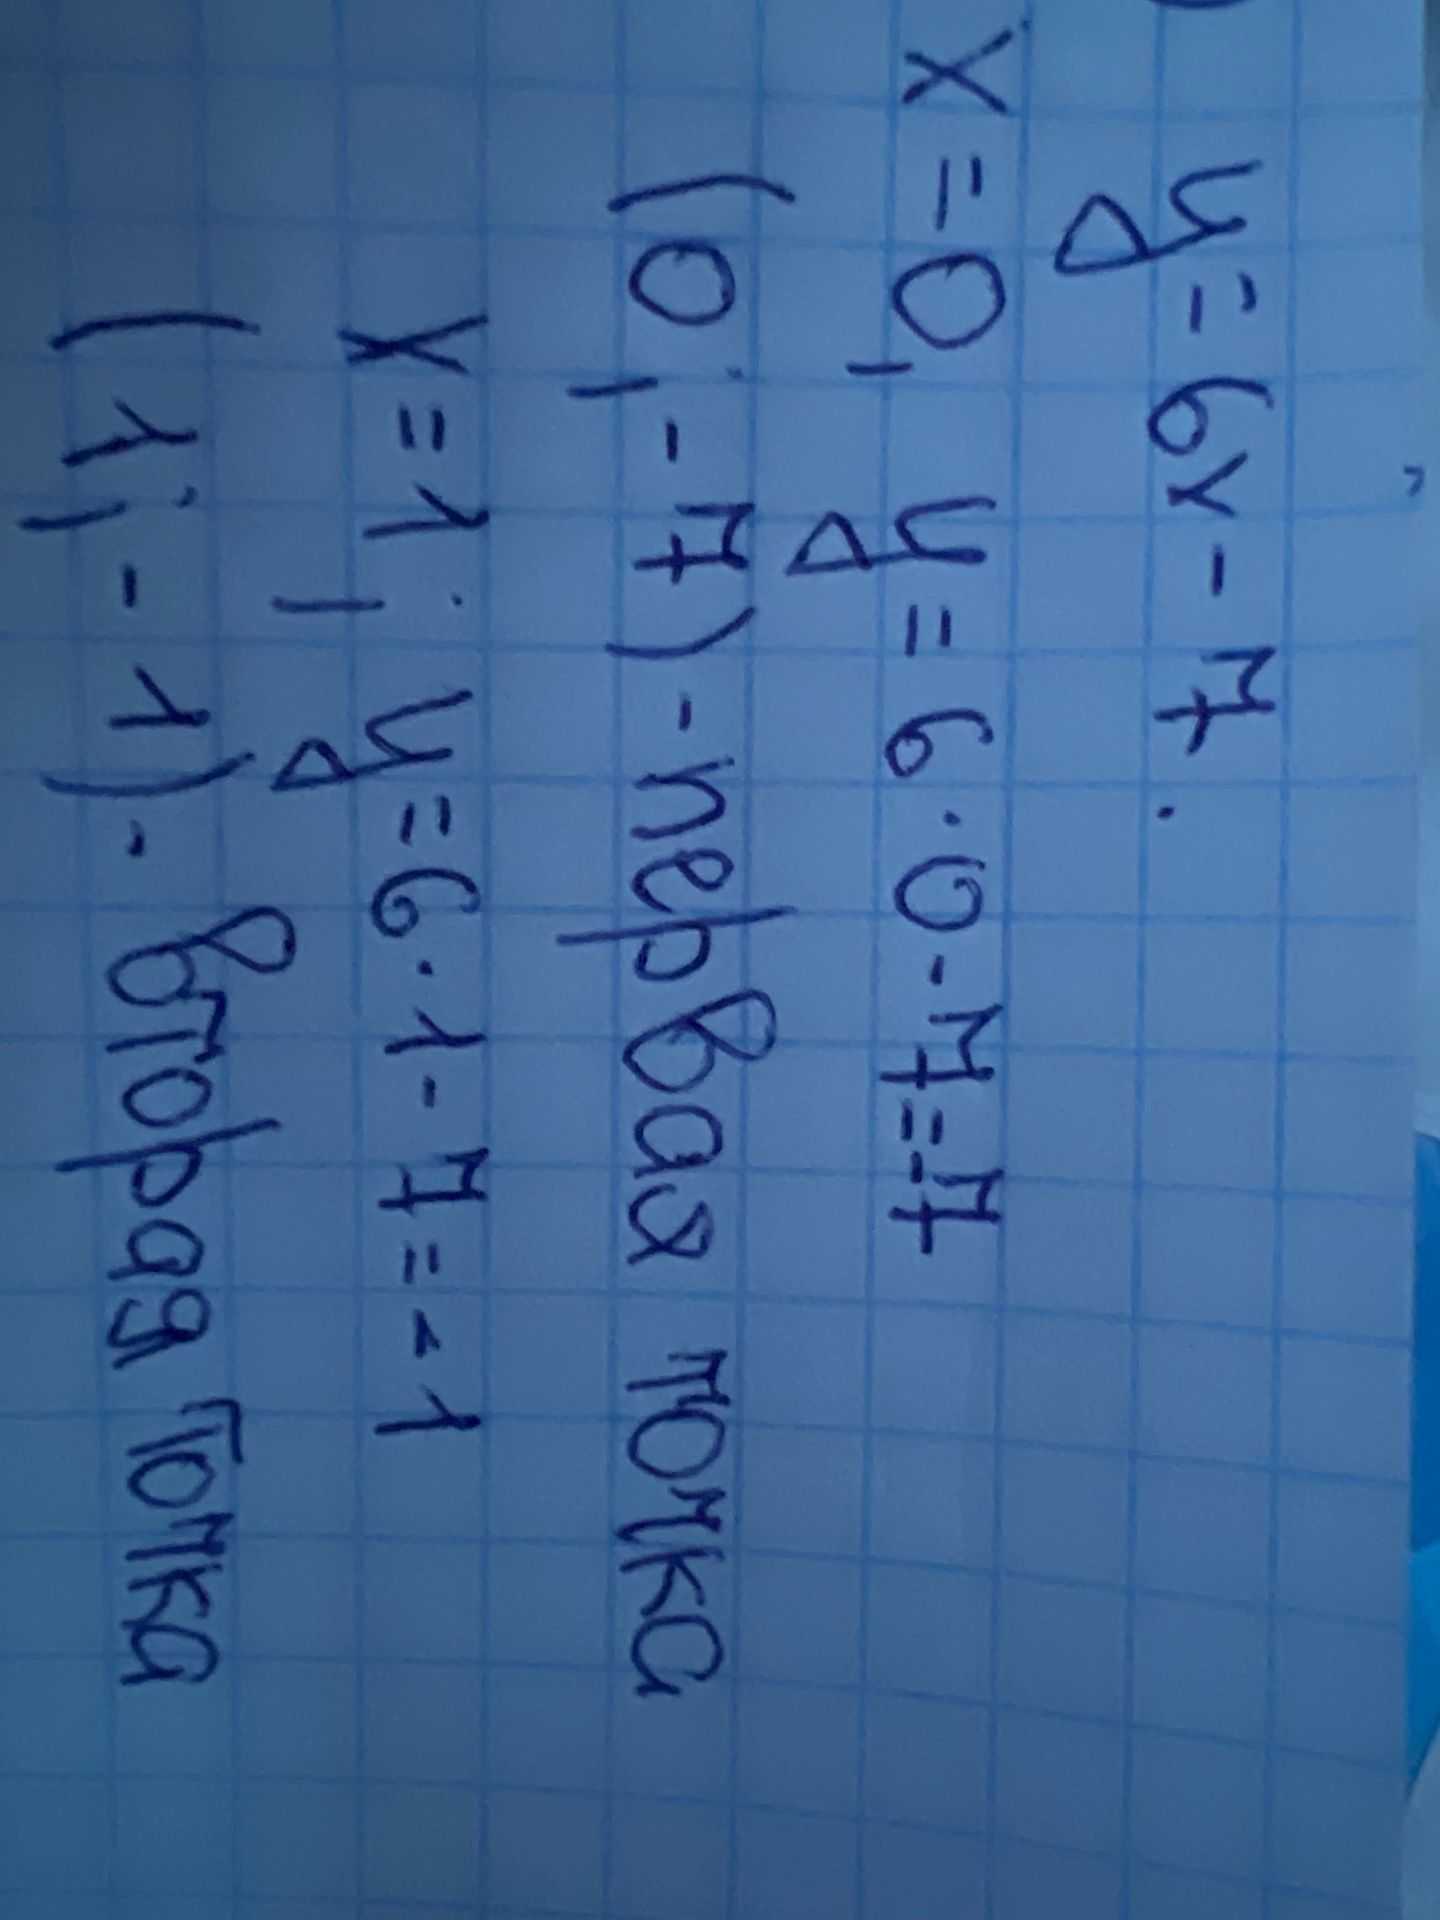 y = 6x - 7.
x = 0, y = 6 · 0 - 7 = -7
(0; -7) - первая точка
x = 1; y = 6 · 1 - 7 = -1
(1; -1) - вторая точка